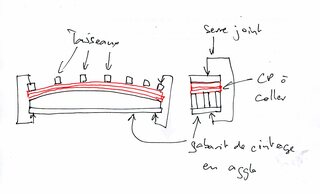 Taisseaux
serre joint
CP à
coller
gabarit de cintrage
en agglo